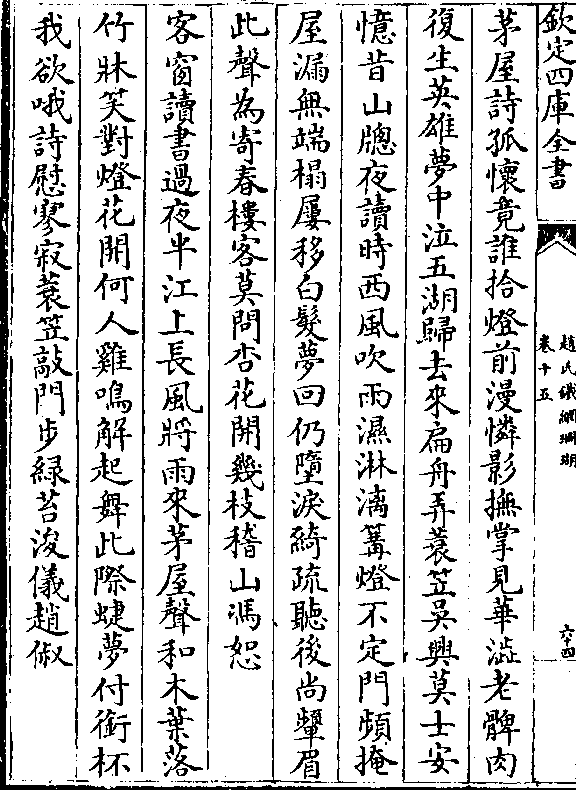 欽定四庫全書
趙氏鐵網珊瑚
卷十五
六十四
茅屋詩孤懷竟誰拾燈前漫憐影撫掌見華澁老髀肉
復生英雄夢中泣五湖歸去來扁舟弄蓑笠吳興莫士安
憶昔山牕夜讀時西風吹雨濕淋漓篝燈不定門頻掩
屋漏無端榻屢移白髮夢回仍墮淚綺疏聽後尚顰眉
此聲為寄春樓客莫問杏花開幾枝稽山馮恕
客窗讀書過夜半江上長風將雨來茅屋聲和木葉落
竹牀笑對燈花開何人雞鳴解起舞此際蜨夢付銜杯
我欲哦詩慰寥寂蓑笠敲門步綠苔浚儀趙俶